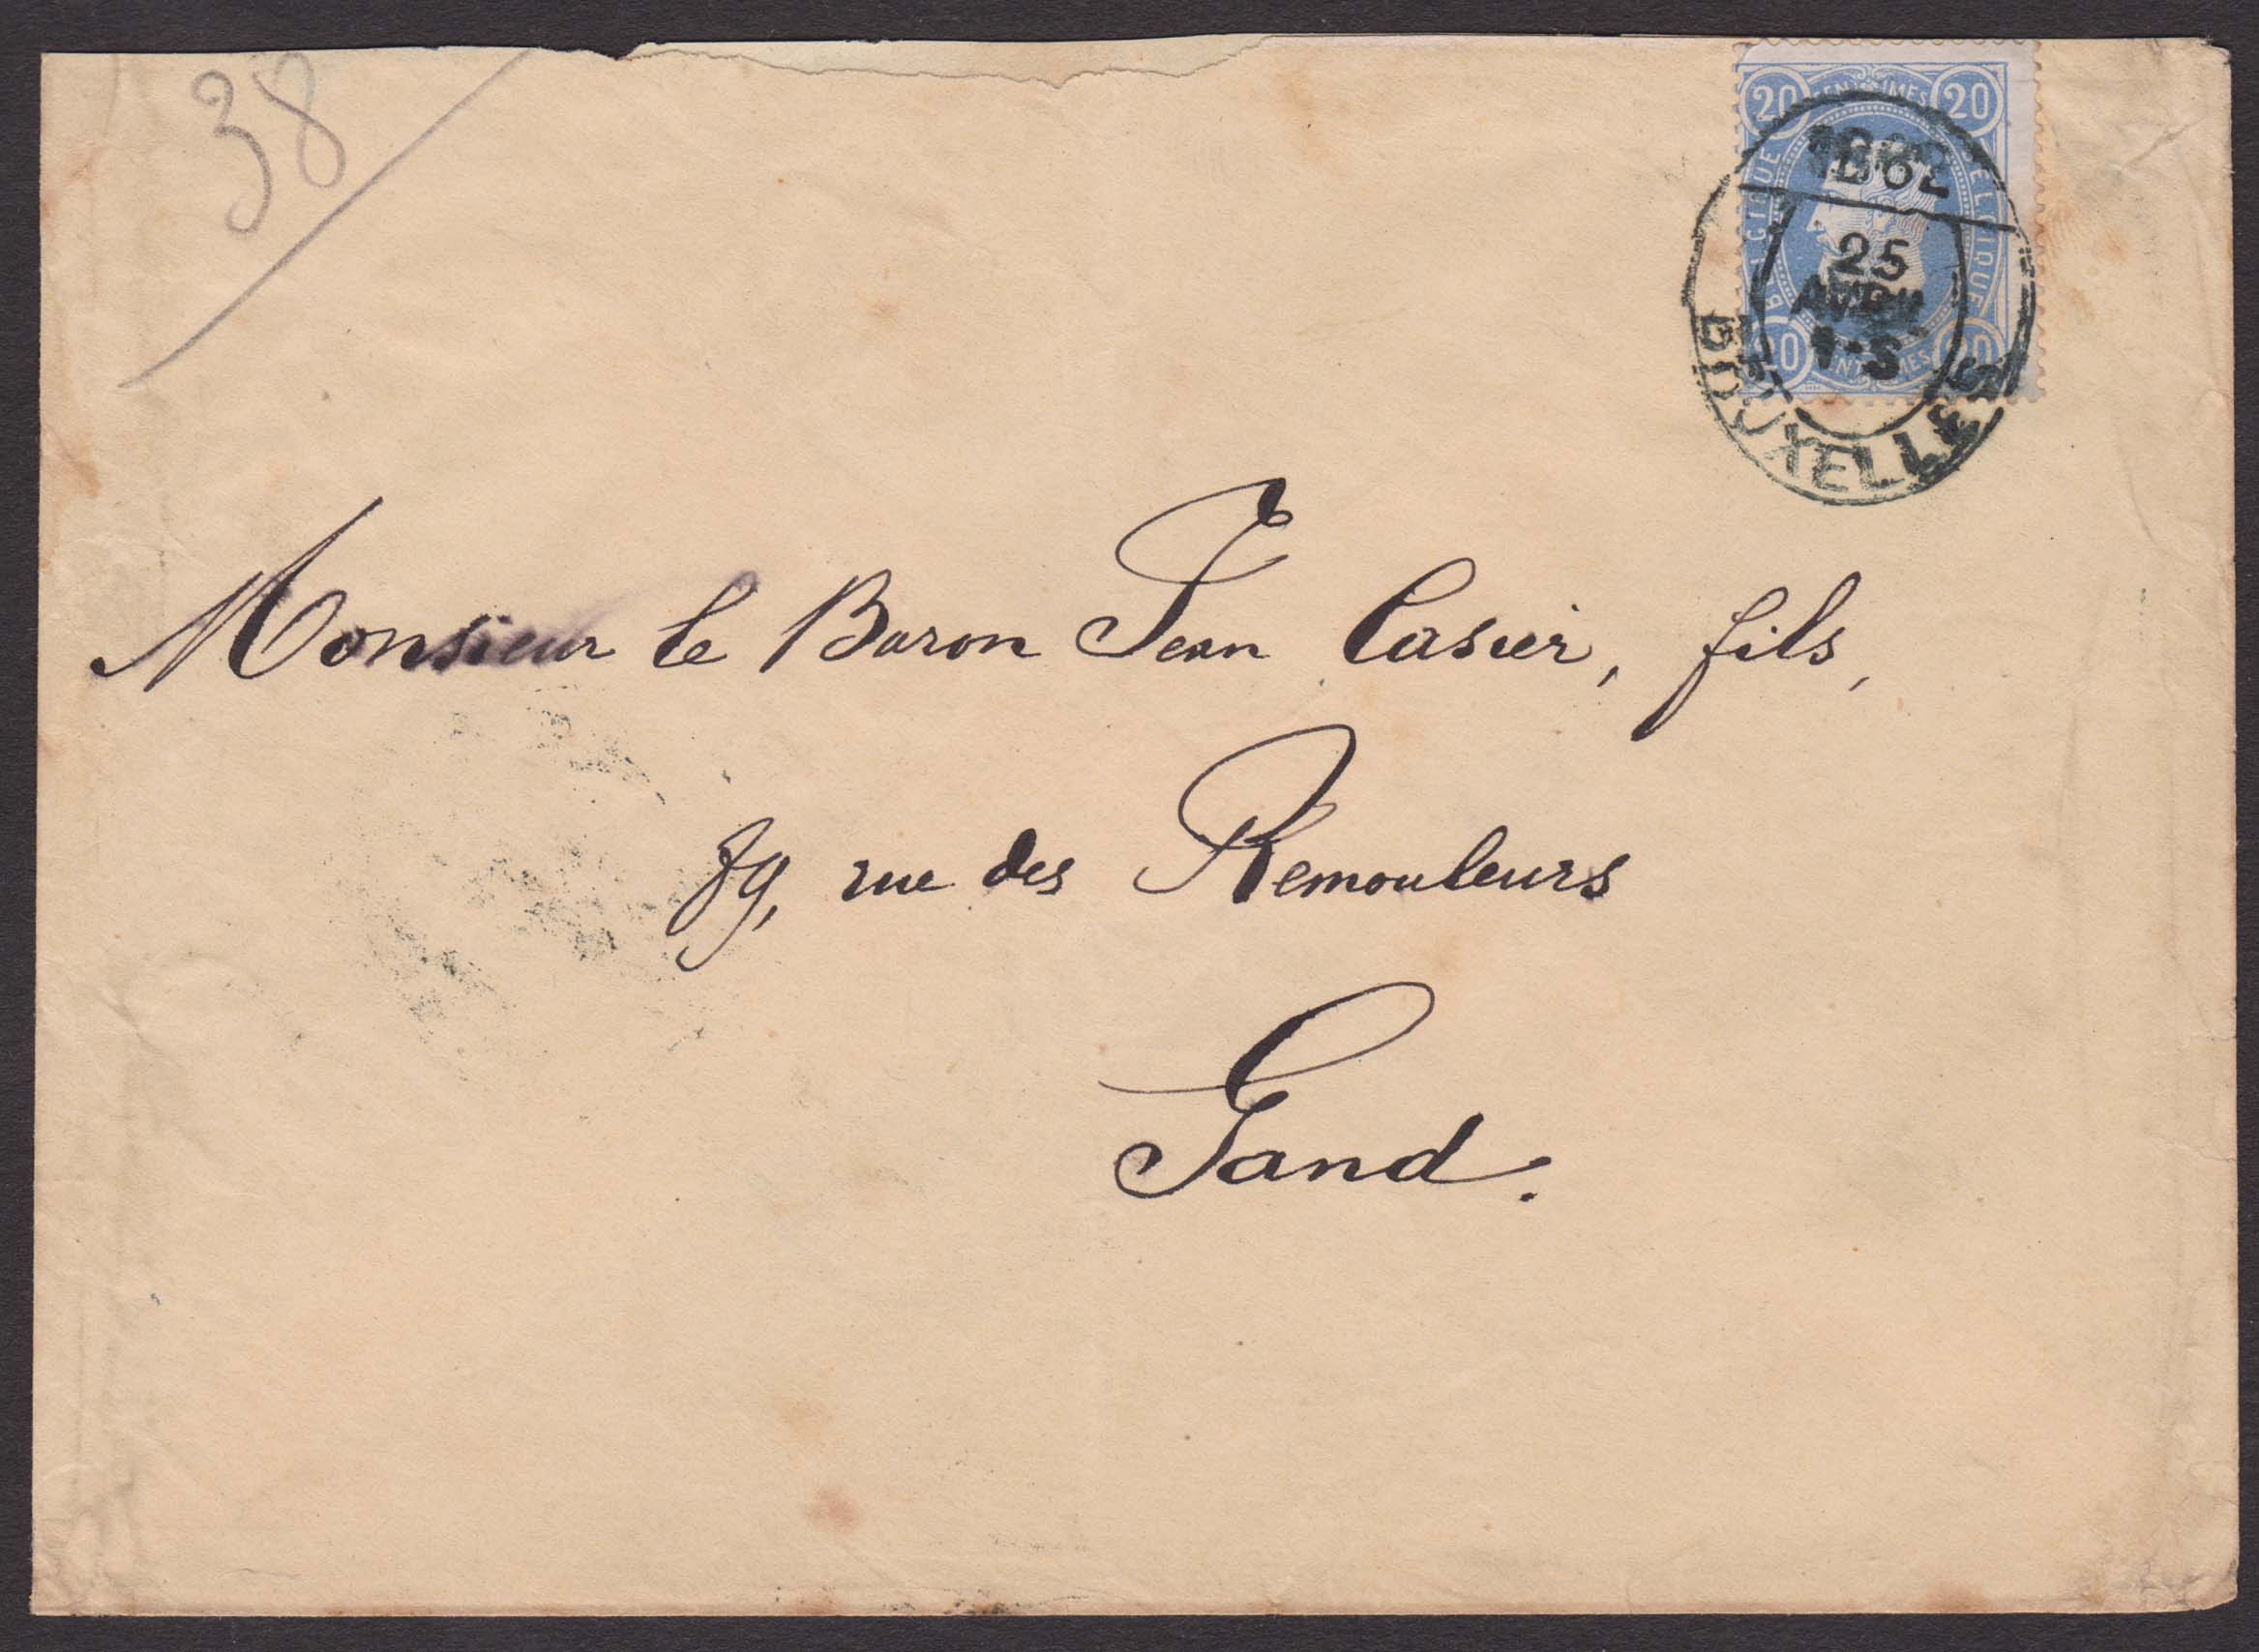 38
20 CENTIMES 20
BELGIQUE BELGIQUE
20 CENTIMES 20
25
AVRIL
1-S
BRUXELLES
Monsieur le Baron Jean Casier, fils,
rue des Remouleurs
Gand.